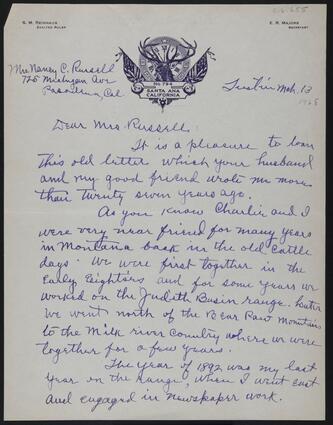 G. M. REINHAUS
EXALTED RULER
E. R. MAJORS
SECRETARY
No. 794
SANTA ANA
CALIFORNIA
Mrs Nancy C. Russell
725 Michigan Ave
Pasadena, Cal
Tustin Mch. 13
Dear Mrs Russell:
It is a pleasure to loan
this old letter which your husband
and my good friend wrote me more
than twenty seven years ago.
As you know Charlie and I
were very near friend for many years
in Montana back in the old cattle
days. We were first together in the
Early Eighters and for some years we
worked on the Judith Basin range. Later
we went north of the Bear Paw Mountains
to the Milk river country where we were
together for a few years.
The year of 1892 was my last
year on the range, when I went east
and engaged in newspaper work.